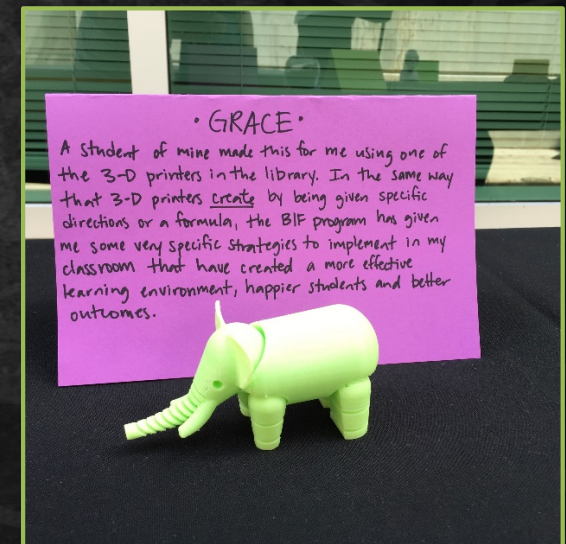 • GRACE •
A student of mine made this for me using one of
the 3-D printers in the library. In the same way
that 3-D printers create by being given specific
directions or a formula, the BIF program has given
me some very specific strategies to implement in my
classroom that have created a more effective
learning environment, happier students and better
outcomes.